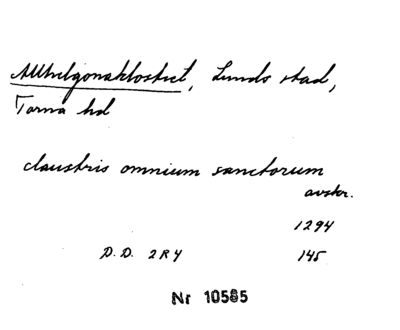 Allhelgonaklostret, Lunds stad,
Torna hd
claustris omnium sanctorum
avskr.
1294
D.D. 2 R 4 145
Nr 10585